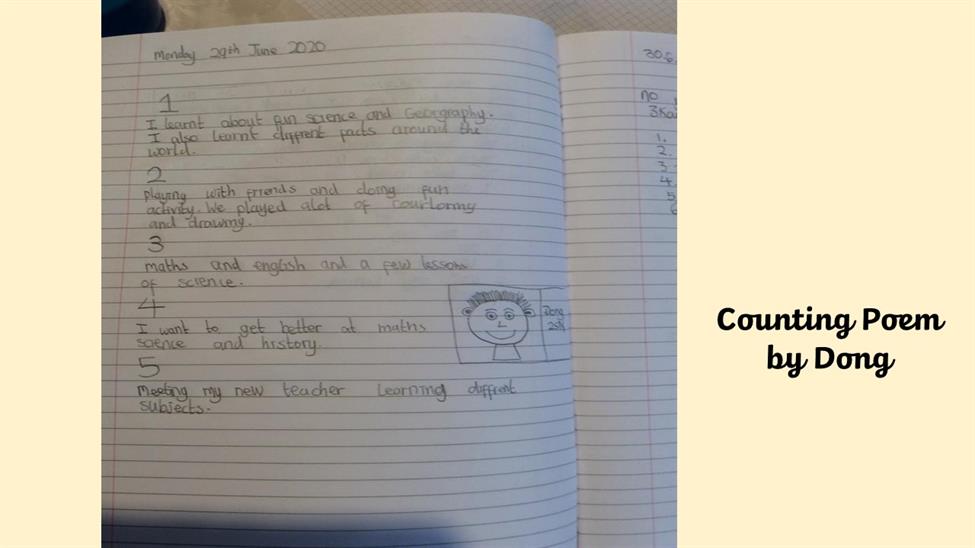 Monday 29th June 2020
1
I learnt about fun science and Georgraphy.
I also learnt diffrent facts around the
world.
2
playing with friends and doing fun
activity. We played alot of courloring
and drawing.
3
maths and english and a few lessons
of science.
4
I want to get better at maths
science and history.
5
Meeting my new teacher Learning diffrent
subjects.
Dong
30.6.
no
1.
2.
3.
4.
5
6
Counting Poem
by Dong